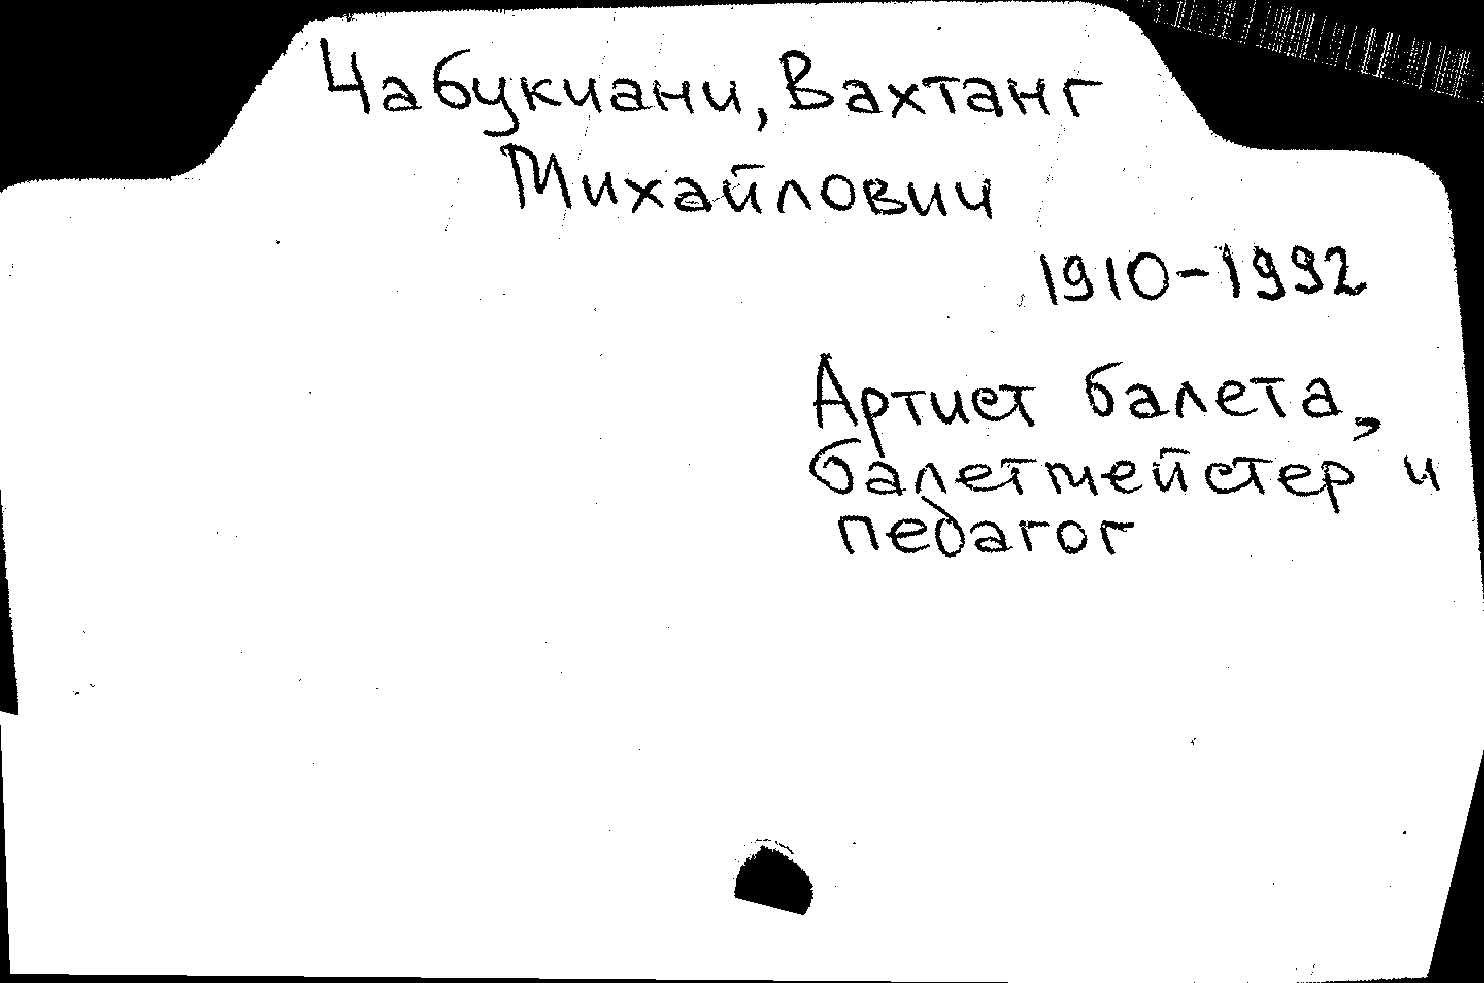 Чабукиани, Вахтанг
Михайлович
1910-1992
Артист балета,
балетмейстер и
педагог